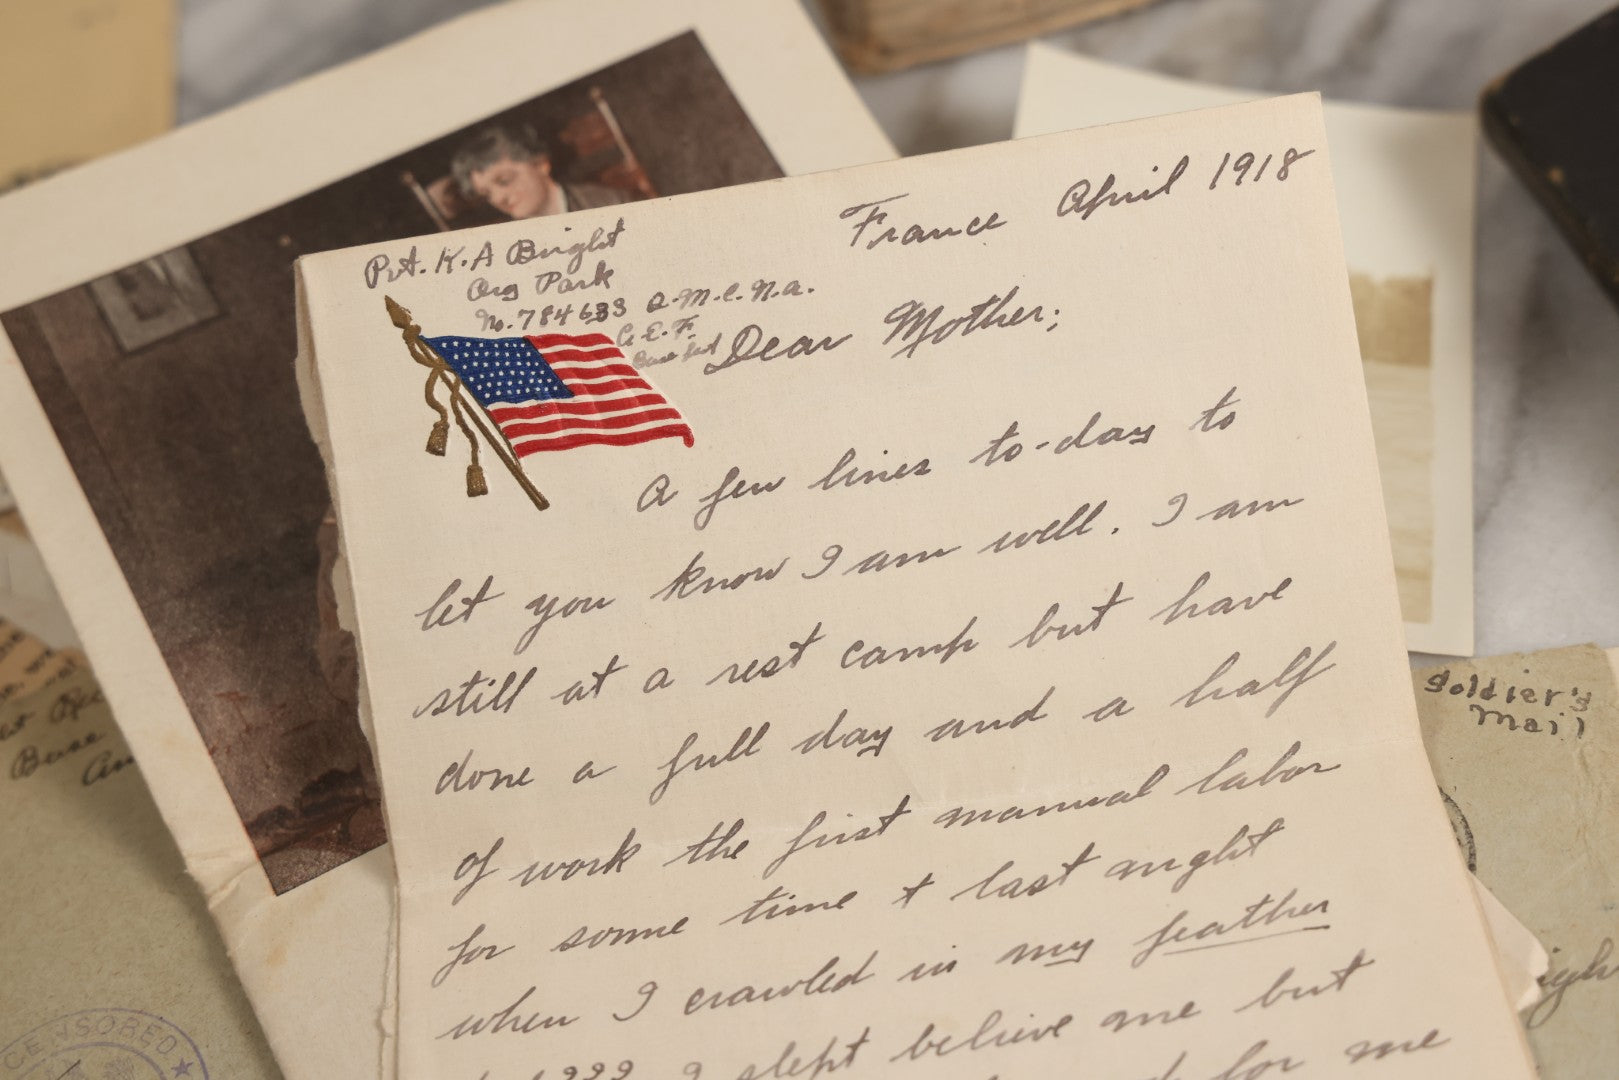 France April 1918
Pvt. K. A Bright
Org Park
No. 784633 Q.M.C.N.A.
A. E. F.
Dear Mother;
A few lines to-day to
let you know I am well. I am
still at a rest camp but have
done a full day and a half
of work the first manual labor
for some time + last night
when I crawled in my feather
??? I slept believe me but
for me
Soldier's
Mail
Base
CENSORED